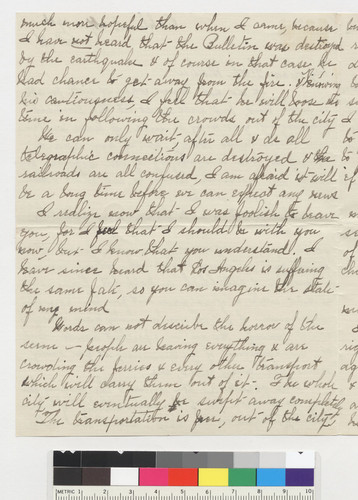 much more hopeful than when I came, because
I have not heard that the Bulletin was destroyed
by the earthquake & of course in that case he
had chance to get away from the fire. Knowing
his cautiousness, I feel that he will loose no
time in following the crowds out of the city
We can only wait after all & as all
telegraphic connections are destroyed & the
railroads are all confused, I am afraid it will
be a long time before we can expect any news
I realize now that I was foolish to leave
you, for I feel that I should be with you
now, but I know that you understand. I
have since heard that Los Angeles is suffering
the same fate, so you can imagine the state
of my mind
Words can not describe the horror of the
scene — people are leaving everything & are
crowding the ferries & every other transport
which will carry them out of it. The whole
city will eventually be swept away completely
The transportation is free, out of the city
METRIC 1 2 3 4 5 6 7 8 9 10